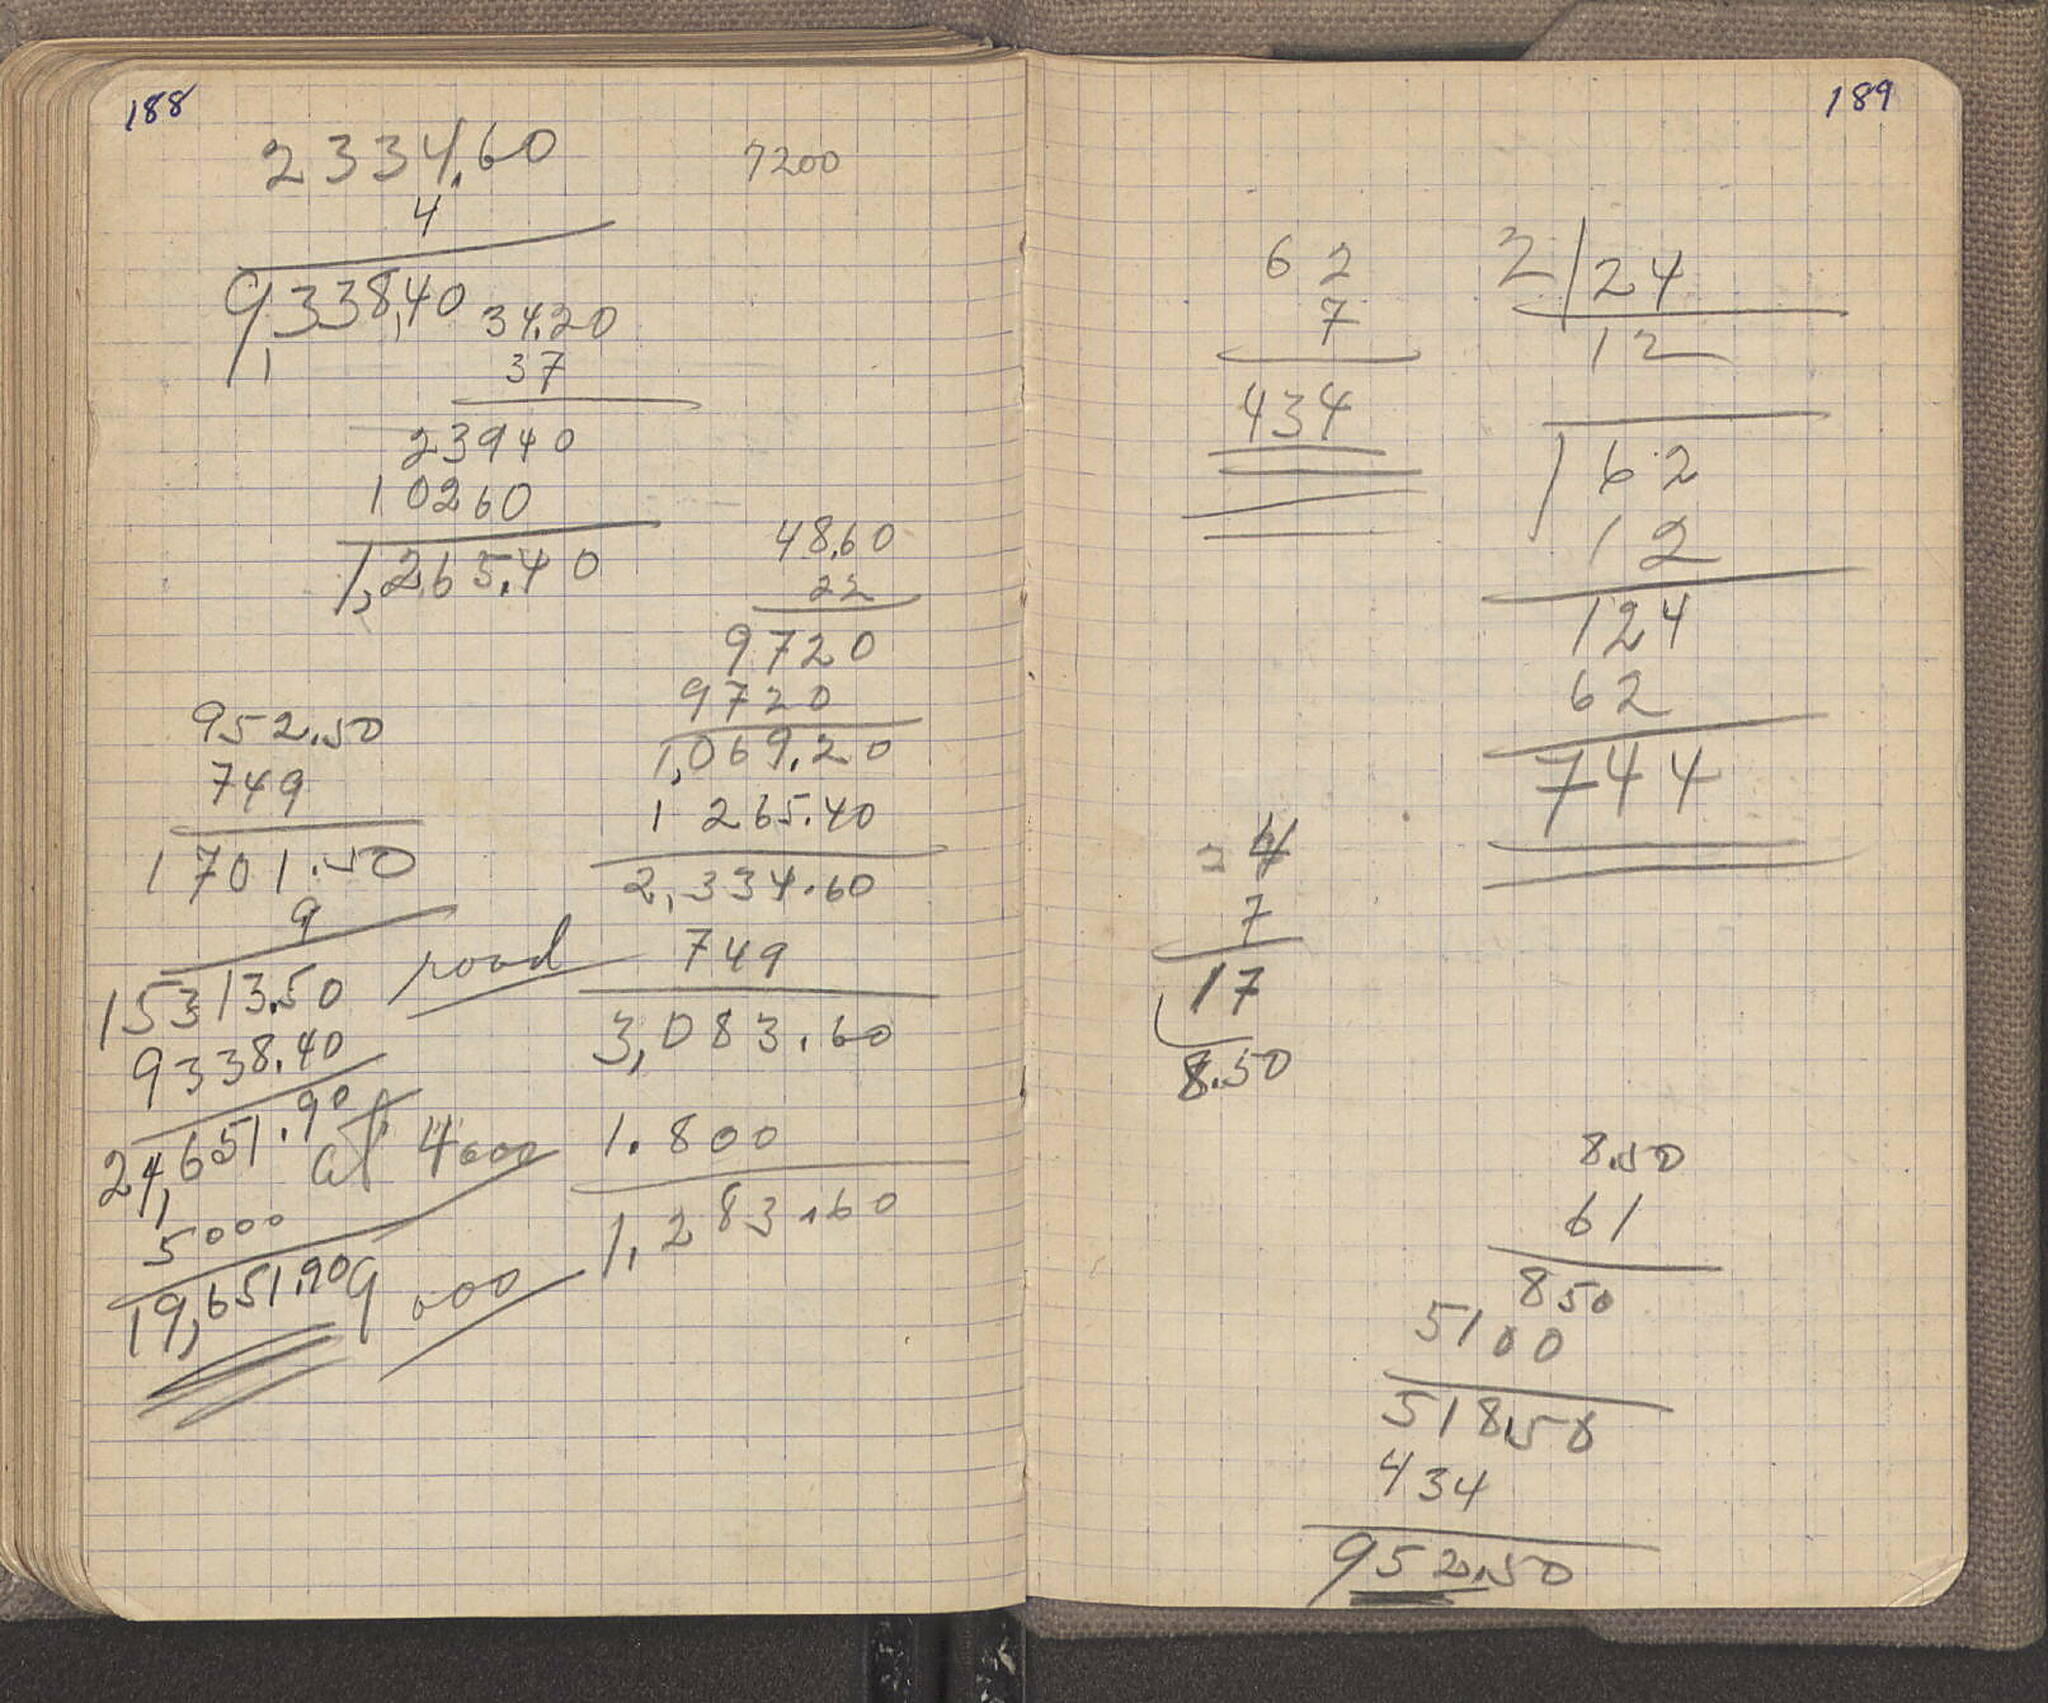 188
2334.60
7200
4
9,338.40
34.20
37
23940
10260
1,265.40
48.60
22
9720
9720
1,069.20
1 265.40
2,334.60
749
3,083.60
1.800
1,283.60
952.50
749
1701.50
9
15313.50
road
9338.40
24,651.90
at 4000
5000
19,651.90
9000
189
62
7
434
2/24
12
62
12
124
62
744
7
17
8.50
8.50
61
850
5100
518.50
434
952.50